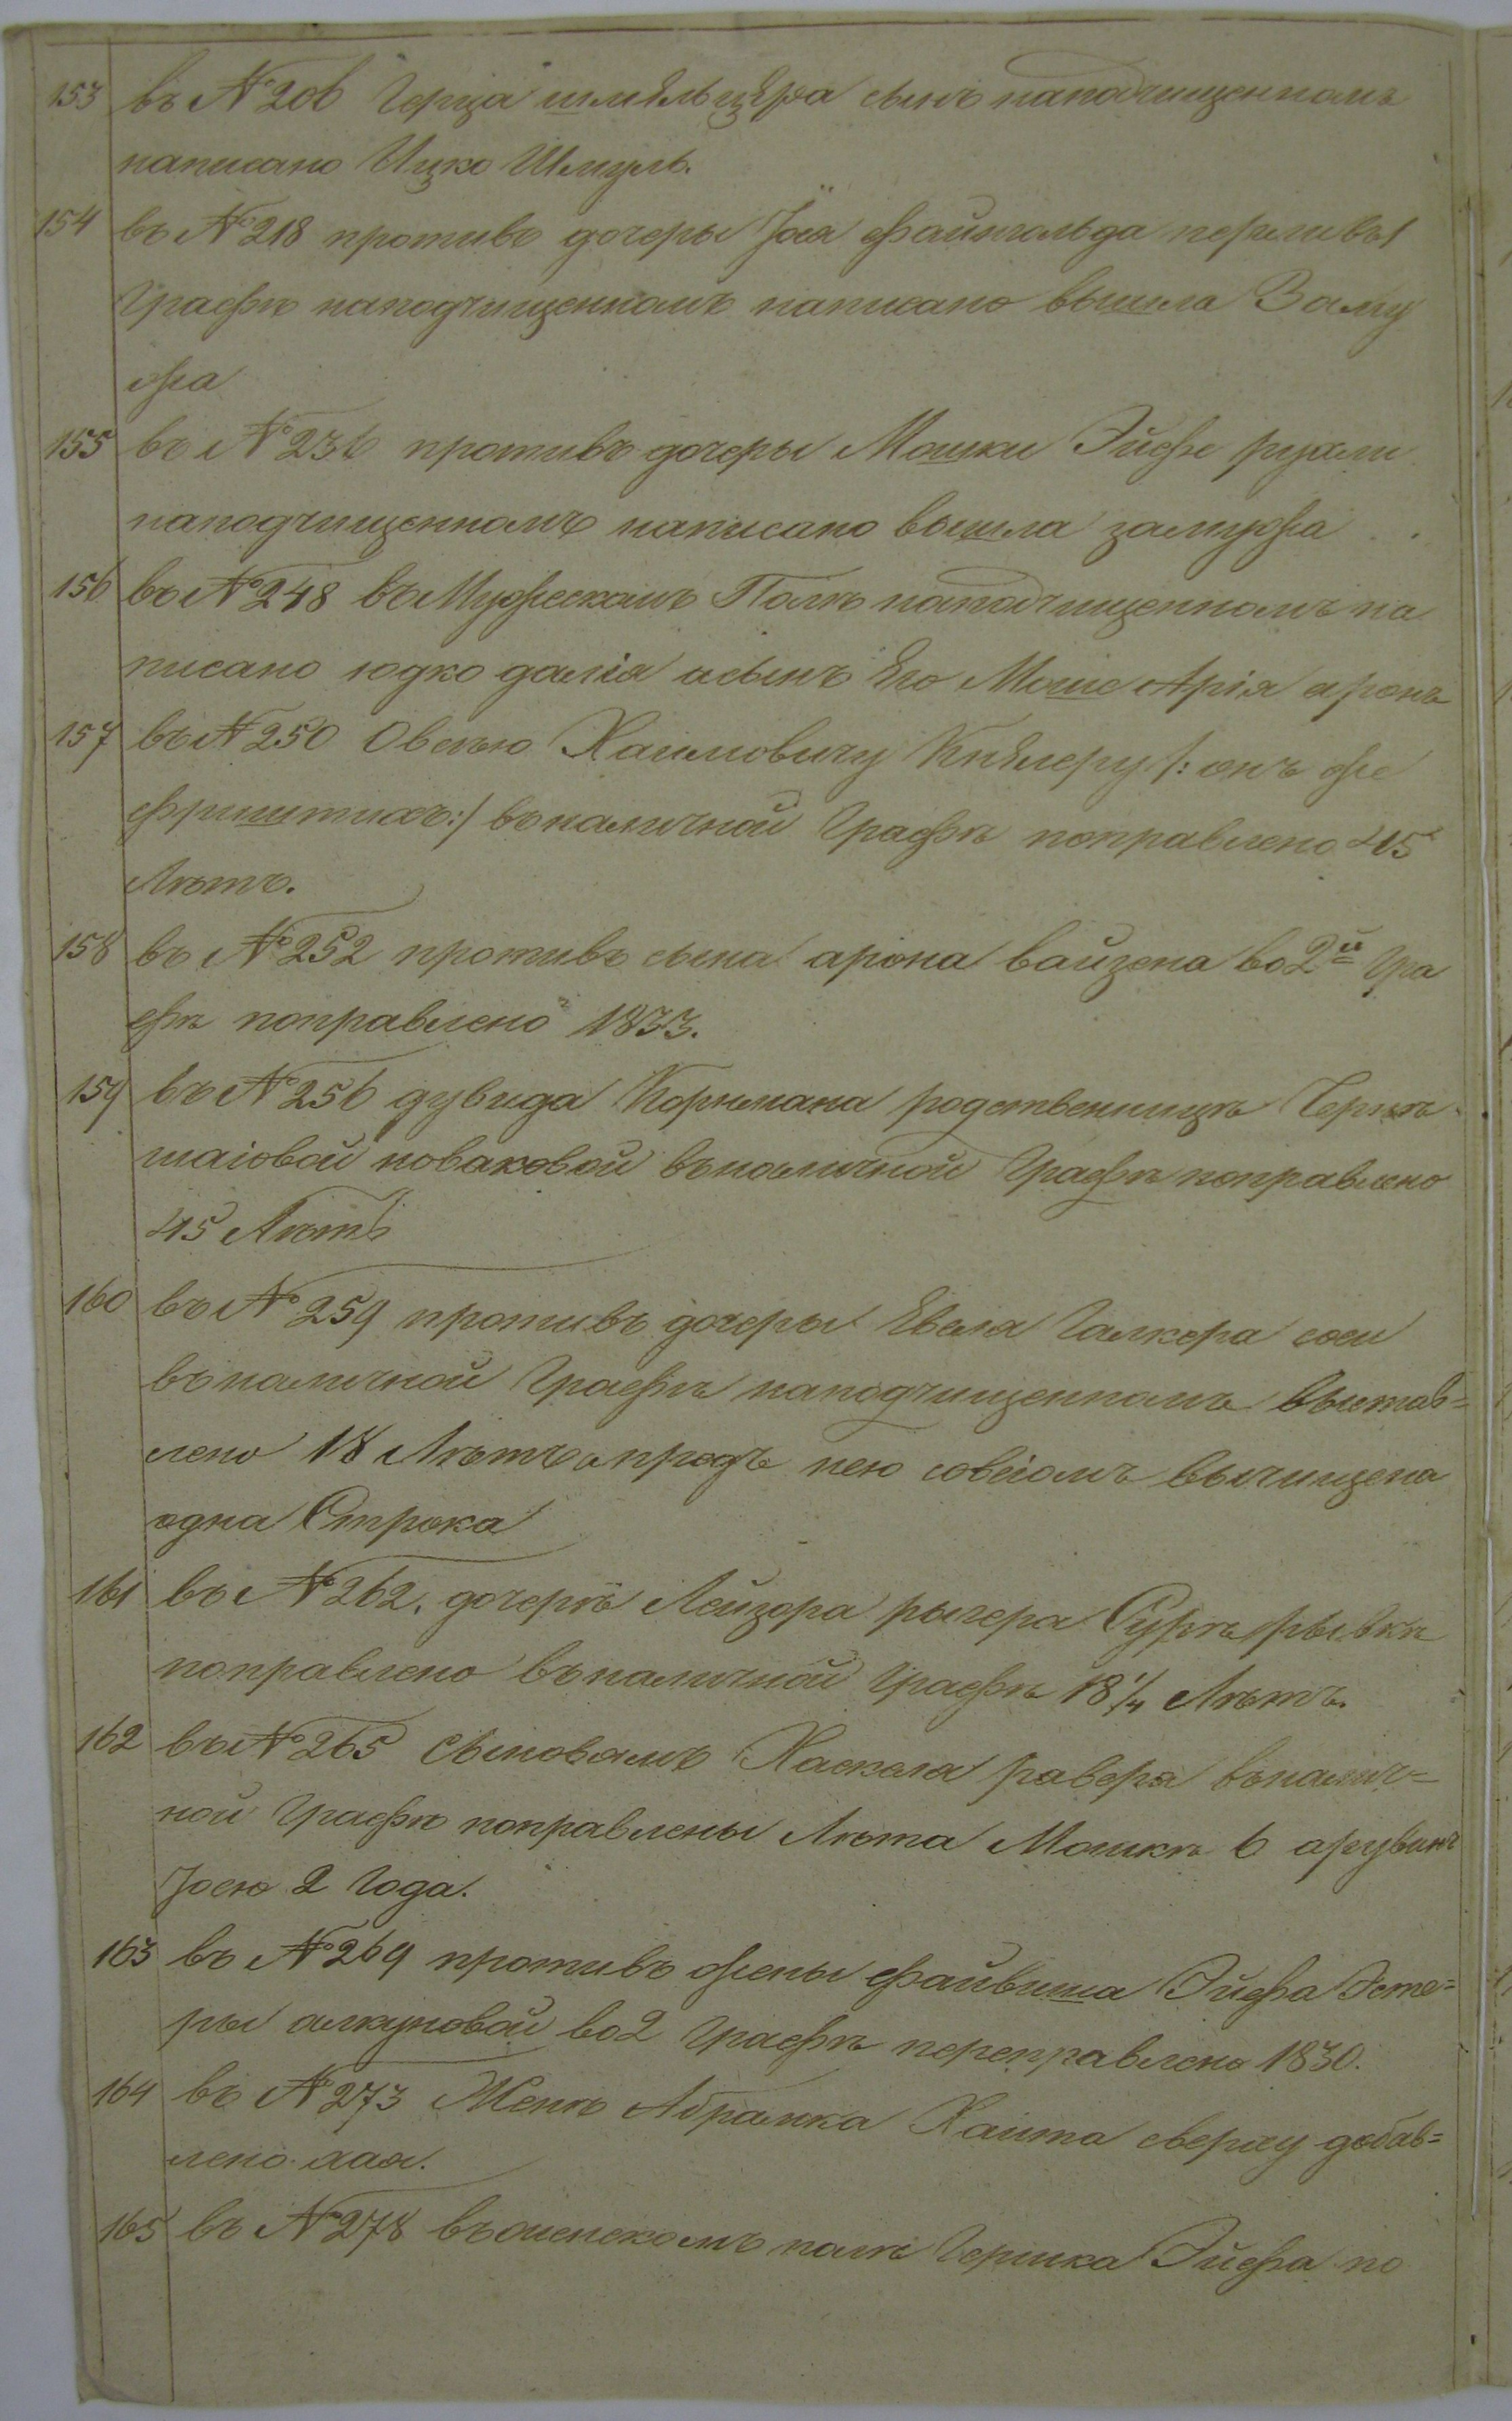 153 въ №206 Герца шмѣльцера сынъ наподчищенномъ
написано Ицко Шмуль.
154 въ №218 противъ дочеры Іося Файнгольда перливы
Графѣ наподчищенномъ написано вышла Заму
жа
155 въ №236 противъ дочеры Мошки Эйсфе рухли
наподчищенномъ написано вышла замужа
156 въ №248 въ Мужескомъ Полѣ наподчищенномъ на
писано юдко далія асынъ Его Моше Арія аронъ
157 въ №250 Овсѣю Хаимовичу Кнѣлеру /: онъ же
фриштихъ:/ въналичной Графѣ поправлено 45
Лѣтъ.
158 въ №252 противъ сына арона вайзена во 2й Гра
фѣ поправлено 1833.
159 въ №256 дувида Корнмана родственницѣ Чернѣ
шаіовой новаковой въналичной Графѣ поправлено
45 Лѣтъ
160 въ №259 противъ дочеры Евеля Галкера соси
въналичной Графѣ наподчищенномъ выстав=
лено 18 Лѣтъ а предъ нею совсіомъ вычищена
одна Строка
161 въ №262. дочерѣ Лейзора рыгера Сурѣ рывкѣ
поправлено въналичной Графѣ 18 1/4 Лѣтъ.
162 въ №265 Сыновямъ Хаскеля равера въналич=
ной Графѣ поправлены Лѣта Мошкѣ 6 арувинѣ
Іосю 2 Года.
163 въ №269 противъ жены файвиша Эйсфа Эсте=
ры алкуновой во 2 Графѣ переправлено 1830.
164 въ №273 Женѣ Абрамка Хаита сверху добав=
лено хая.
165 въ №278 въженскомъ полѣ Гершка Эйсфа по